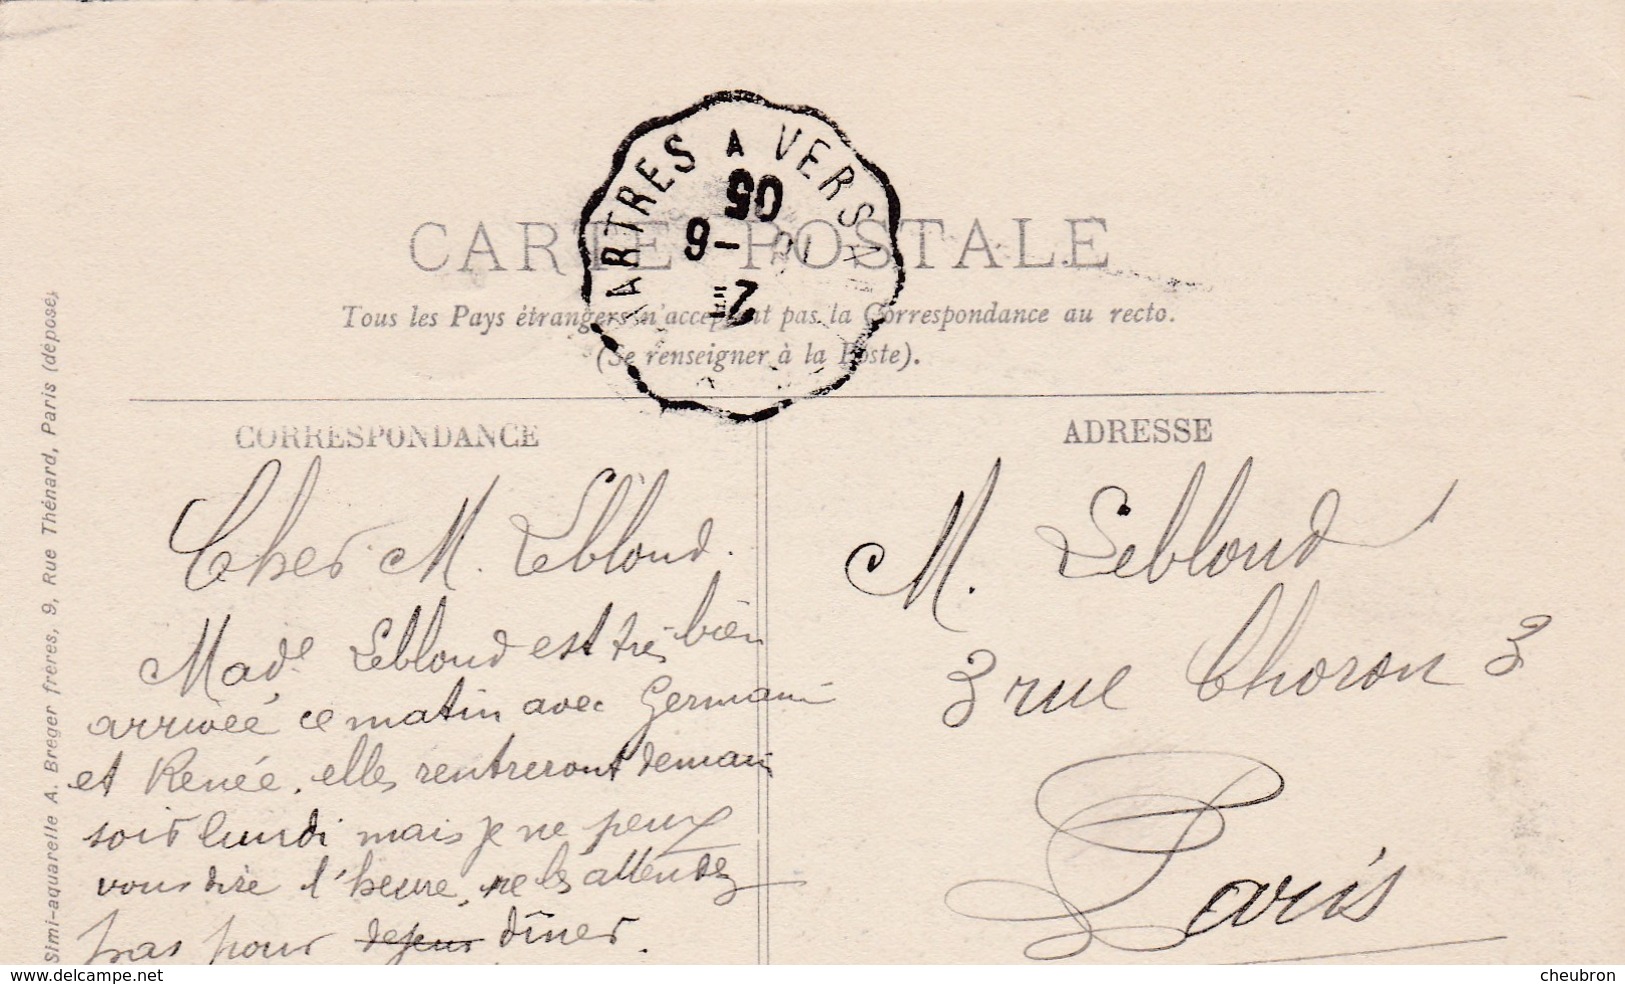 ARTRES A VERSA
05
6 -
2E
CARTE POSTALE
Tous les Pays étrangers n'acceptent pas la Correspondance au recto.
(Se renseigner à la Poste).
CORRESPONDANCE
Cher M. Leblond.
Made Leblond est très bien
arrivée ce matin avec Germaine
et Renée. elles rentreront demain
soir lundi mais je ne peux
vous dire l'heure, ne les attendez
pas pour dejeur dîner.
ADRESSE
M. Leblond
3 rue Choron 3
Paris
Simi-aquarelle A. Breger frères, 9, Rue Thénard, Paris (déposé)
www.delcampe.net
cheubron